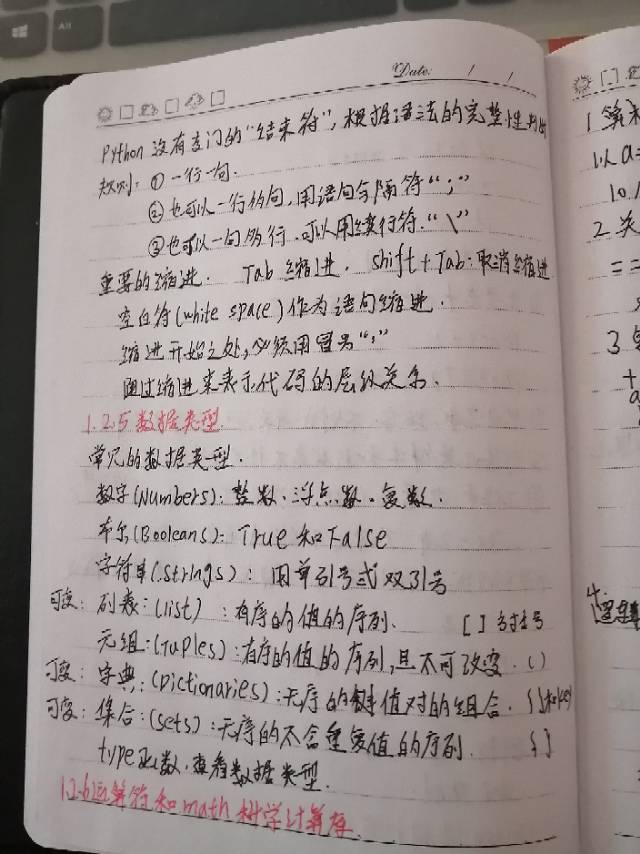 Alt
Date: / /
Python 没有专门的“结束符”,根据语法的完整性判断
规则:① 一行一句.
② 也可以一行多句,用语句分隔符“;”
③ 也可以一句多行,可以用续行符“\”
重要的缩进. Tab 缩进. shift+Tab:取消缩进
空白符(white space)作为语句缩进.
缩进开始之处,必须用冒号“:”
通过缩进来表示代码的层级关系.
1.2.5 数据类型
常见的数据类型.
数字(Numbers):整数、浮点数、复数.
布尔(Booleans):True 和 False
字符串(Strings):用单引号或双引号
可变:列表:(list) :有序的值的序列. [ ] 方括号
元组:(Tuples):有序的值的序列,且不可改变.( )
可变:字典:(Dictionaries):无序的键值对的组合.{ }和key
可变:集合:(sets):无序的不含重复值的序列. { }
type函数,查看数据类型.
1.2.6运算符和math科学计算库.
1 算术
以a=
10.
2 关
==
3
+
a
4